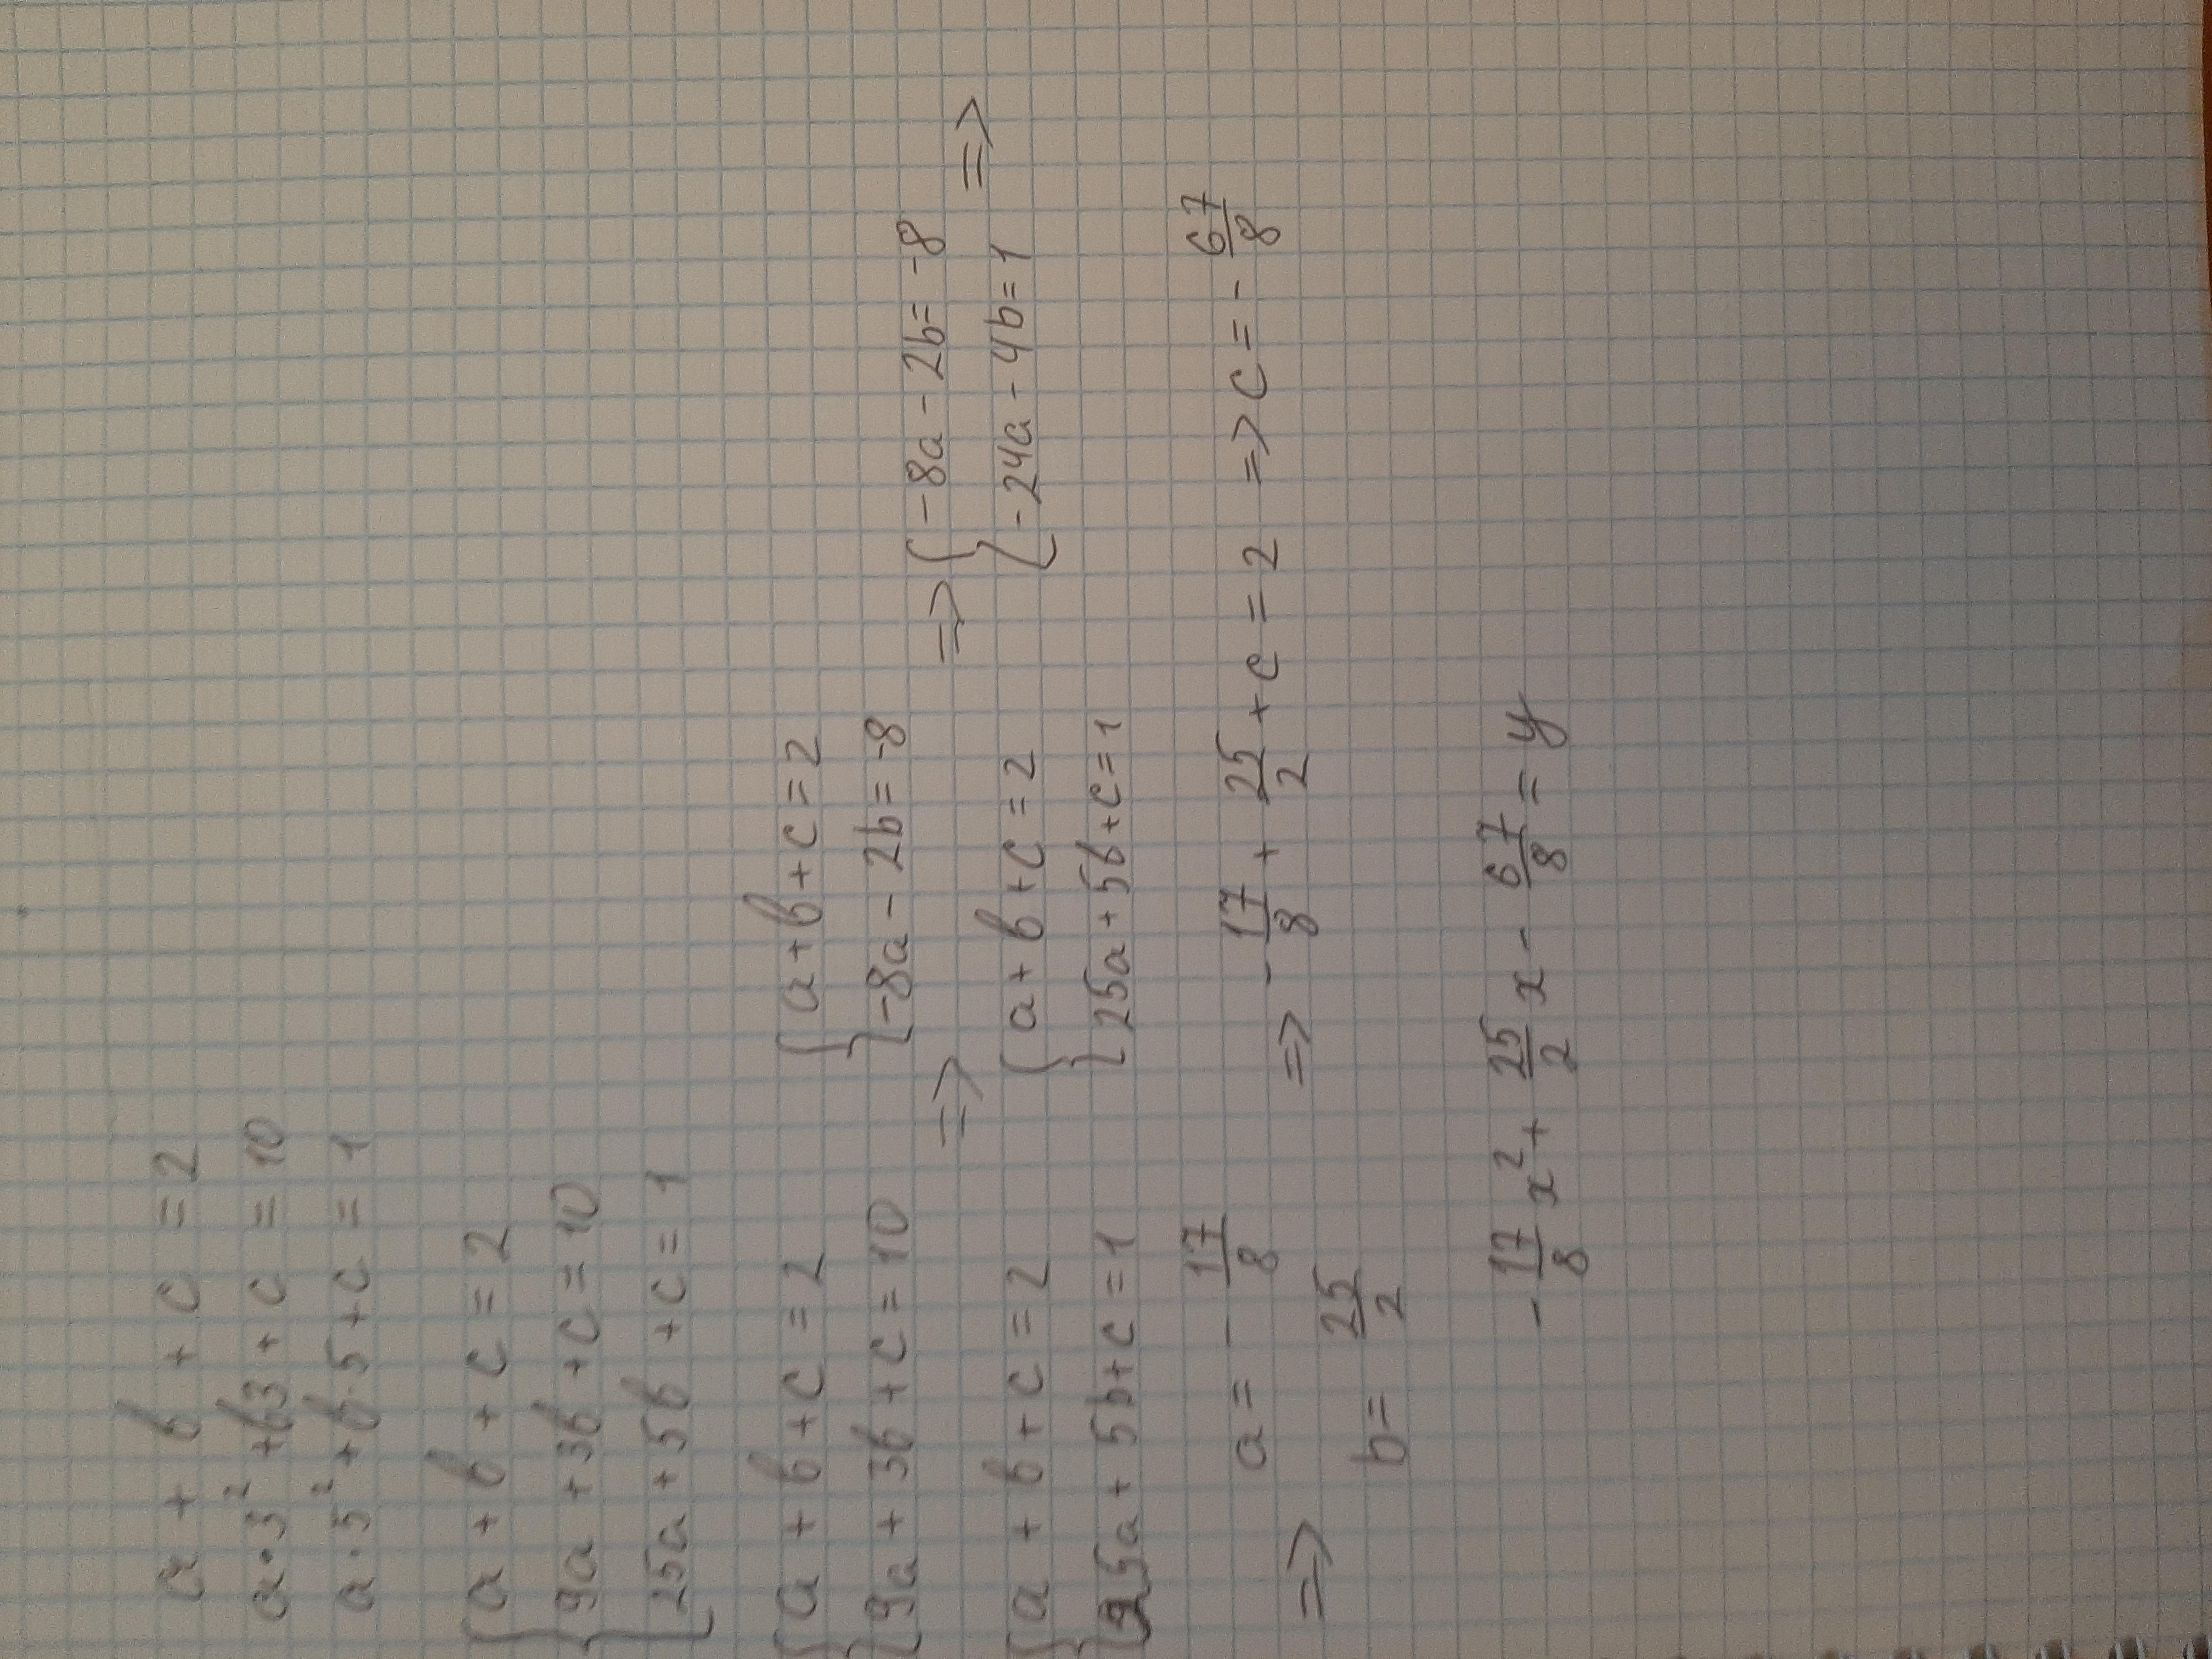 a + b + c = 2
a·3² + b3 + c = 10
a·5² + b·5 + c = 1
a + b + c = 2
9a + 3b + c = 10
25a + 5b + c = 1
a + b + c = 2
9a + 3b + c = 10
a + b + c = 2
25a + 5b + c = 1
=>
a + b + c = 2
-8a - 2b = -8
a + b + c = 2
25a + 5b + c = 1
=>
-8a - 2b = -8
-24a - 4b = 1
=>
=> a = -17/8
b = 25/2
=> -17/8 + 25/2 + c = 2 => c = -67/8
-17/8 x² + 25/2 x - 67/8 = y